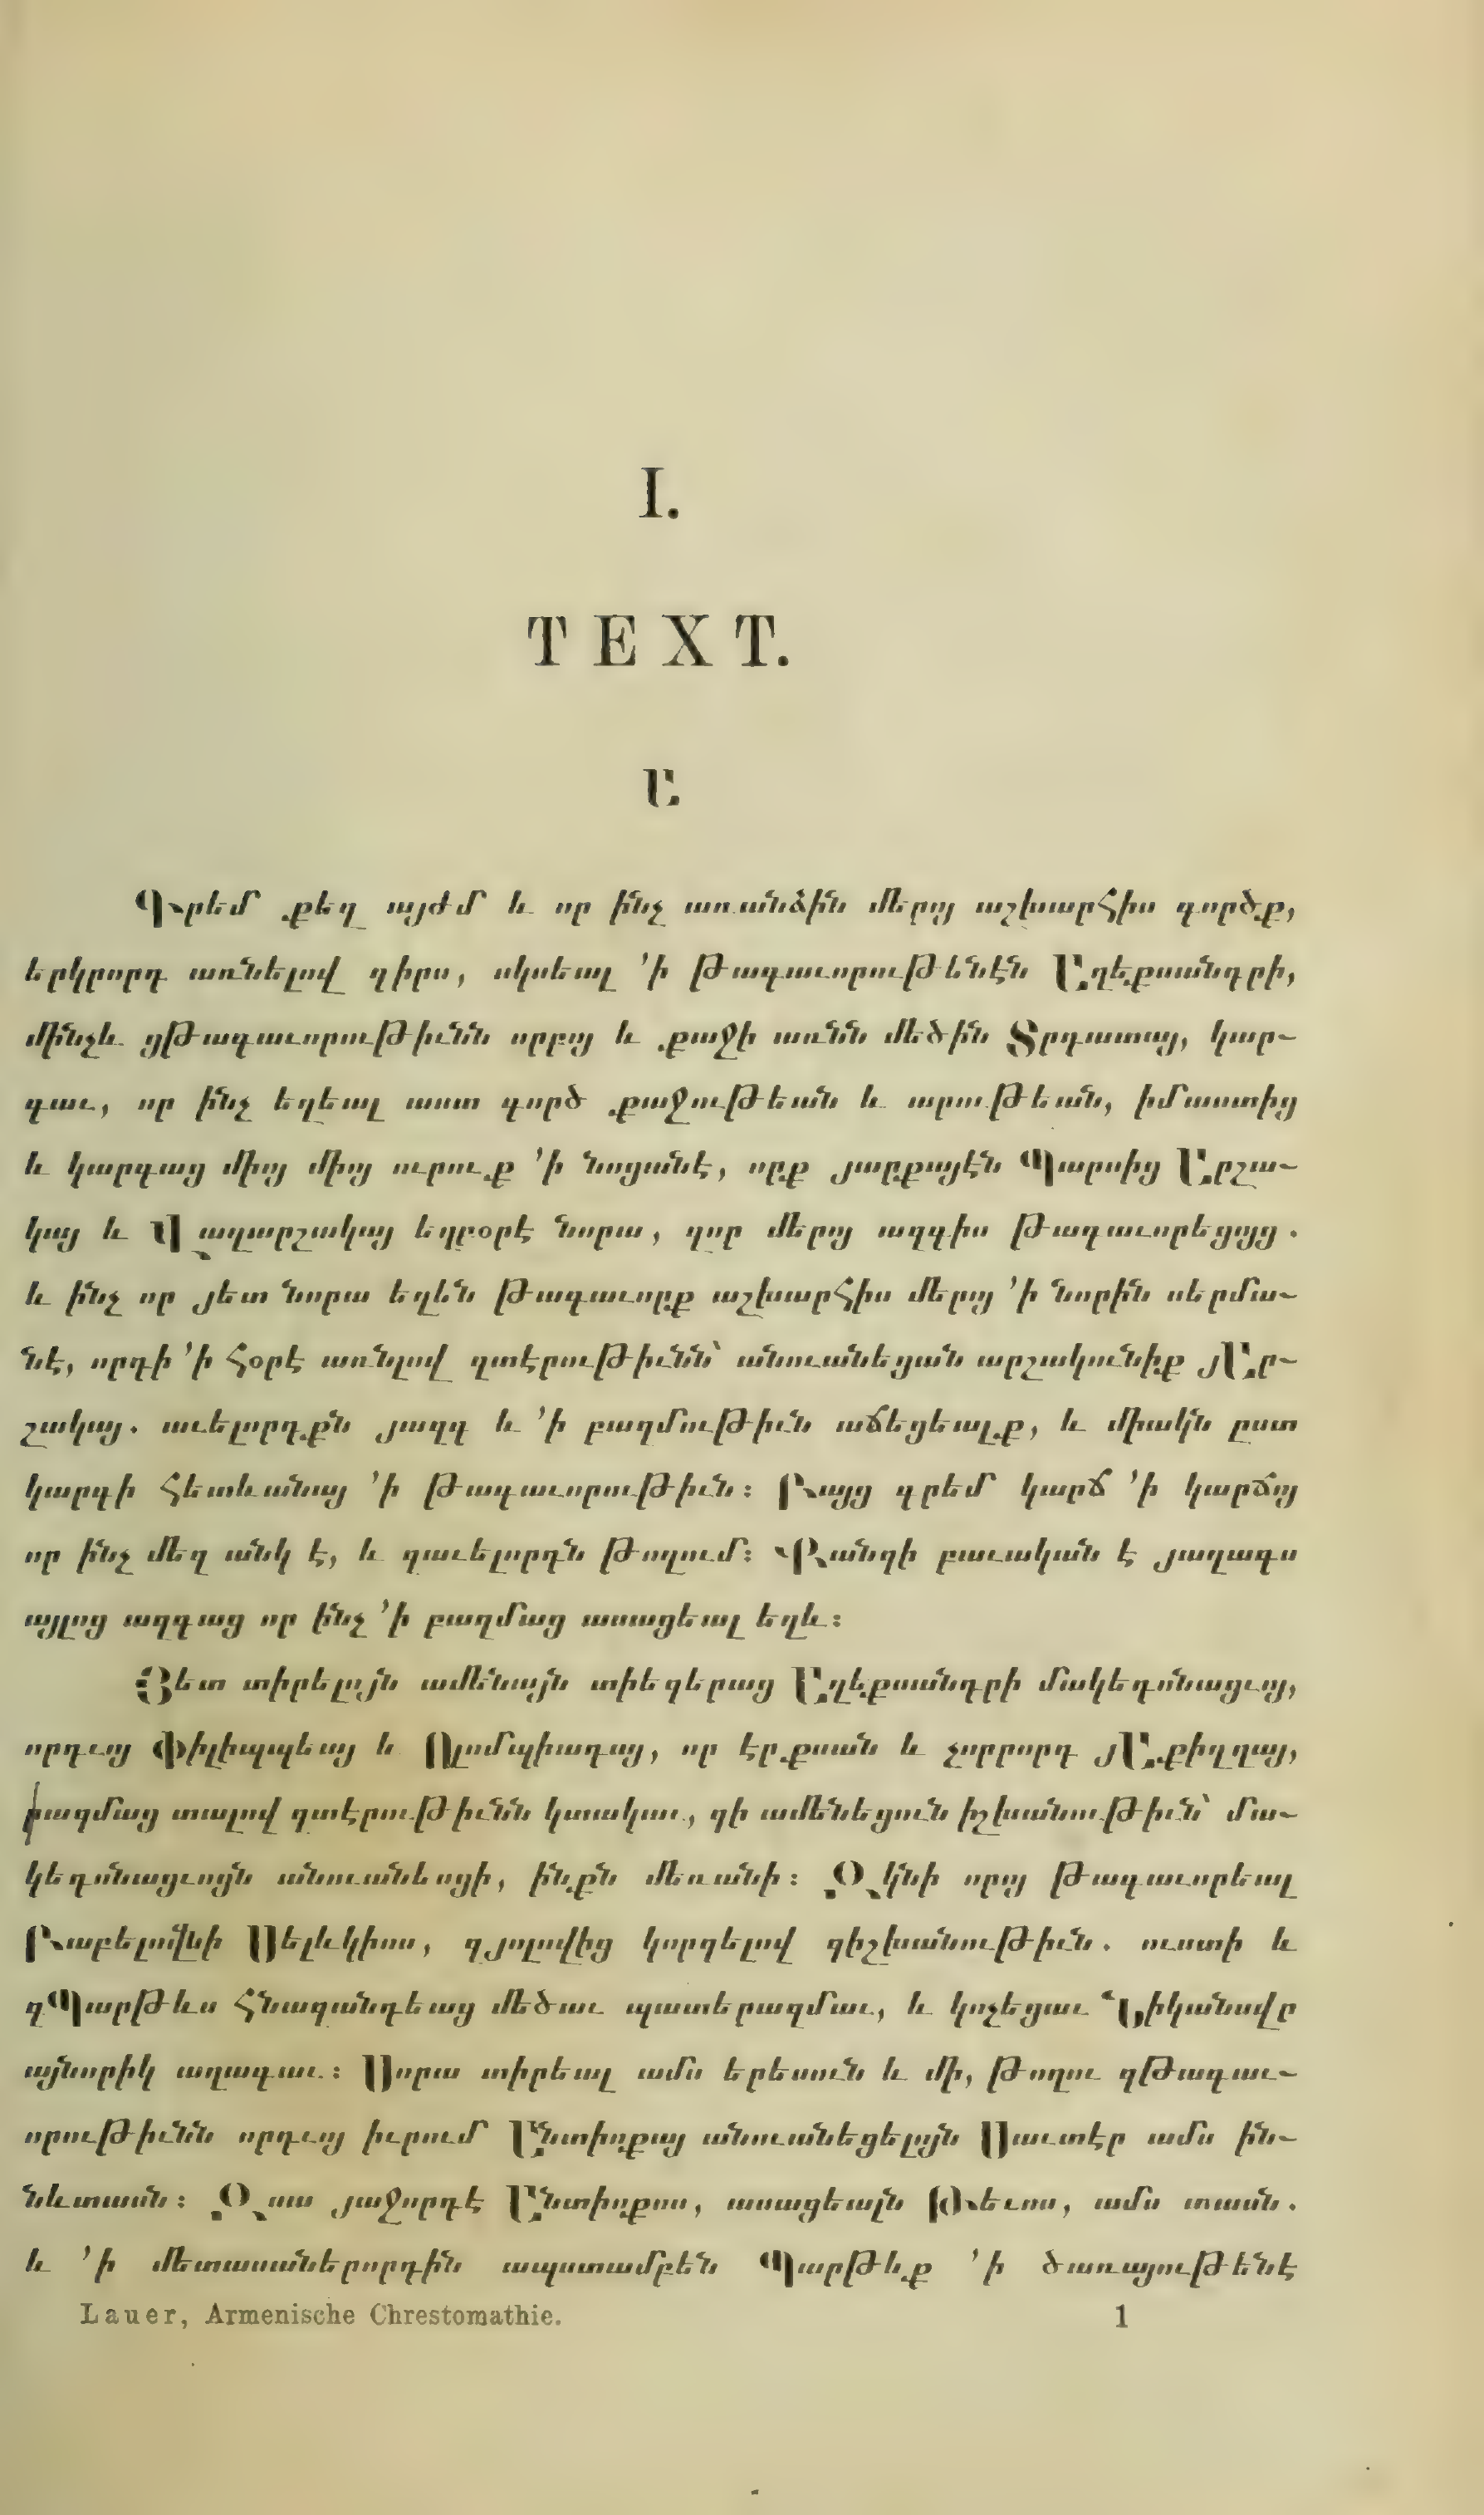 I.
TEXT.
Ա.
Գրեմ քեզ այժմ և որ ինչ առանձին մերոյ աշխարհիս գործք,
երկրորդ առնելով գիրս, սկսեալ ’ի թագաւորութենէն Աղեքսանդրի,
մինչև ցթագաւորութիւնն որբոյ և քաջի առնն մեծին Տրդատայ, կար-
գաւ, որ ինչ եղեալ աստ գործ քաջութեան և արութեան, իմաստից
և կարգաց միոյ միոյ ուրուք ’ի նոցանէ, որք յարքայէն Պարսից Արշա-
կայ և Վաղարշակայ եղբօրէ նորա, զոր մերոյ ազգիս թագաւորեցոյց.
և ինչ որ յետ նորա եղեն թագաւորք աշխարհիս մերոյ ’ի նորին սերմա-
նէ, որդի ’ի հօրէ առնլով զտէրութիւնն՝ անուանեցան արշակունիք յԱր-
շակայ. աւելորդքն յազգ և ’ի բազմութիւն աճեցեալք, և միակն ըստ
կարգի հետևանայ ’ի թագաւորութիւն։ Բայց գրեմ կարճ ’ի կարճոյ
որ ինչ մեզ անկ է, և զաւելորդն թողում։ Քանզի բաւական է յաղագս
այլոց ազգաց որ ինչ ’ի բազմաց ասացեալ եղև։
Յետ տիրելոյն ամենայն տիեզերաց Աղեքսանդրի մակեդոնացւոյ,
որդւոյ Փիլիպպեայ և Ոլոմպիադայ, որ էր քսան և չորրորդ յԱքիղղայ,
բազմաց տալով զտէրութիւնն կտակաւ, զի ամենեցուն իշխանութիւն՝ մա-
կեդոնացւոյն անուանեսցի, ինքն մեռանի։ Զկնի որոյ թագաւորեալ
Բաբելովնի Սելևկիոս, զյոլովից կորզելով զիշխանութիւն. ուստի և
զՊարթևս հնազանդեաց մեծաւ պատերազմաւ, և կոչեցաւ Նիկանովր
այնորիկ աղագաւ։ Սորա տիրեալ ամս երեսուն և մի, թողու զթագաւ-
որութիւնն որդւոյ իւրում Անտիոքայ անուանեցելոյն Սաւտէր ամս ին-
նևտասն։ Զսա յաջորդէ Անտիոքոս, ասացեալն Թէւոս, ամս տասն.
և ’ի մետասաներորդին ապստամբեն Պարթևք ’ի ծառայութենէ
Lauer, Armenische Chrestomathie. 1